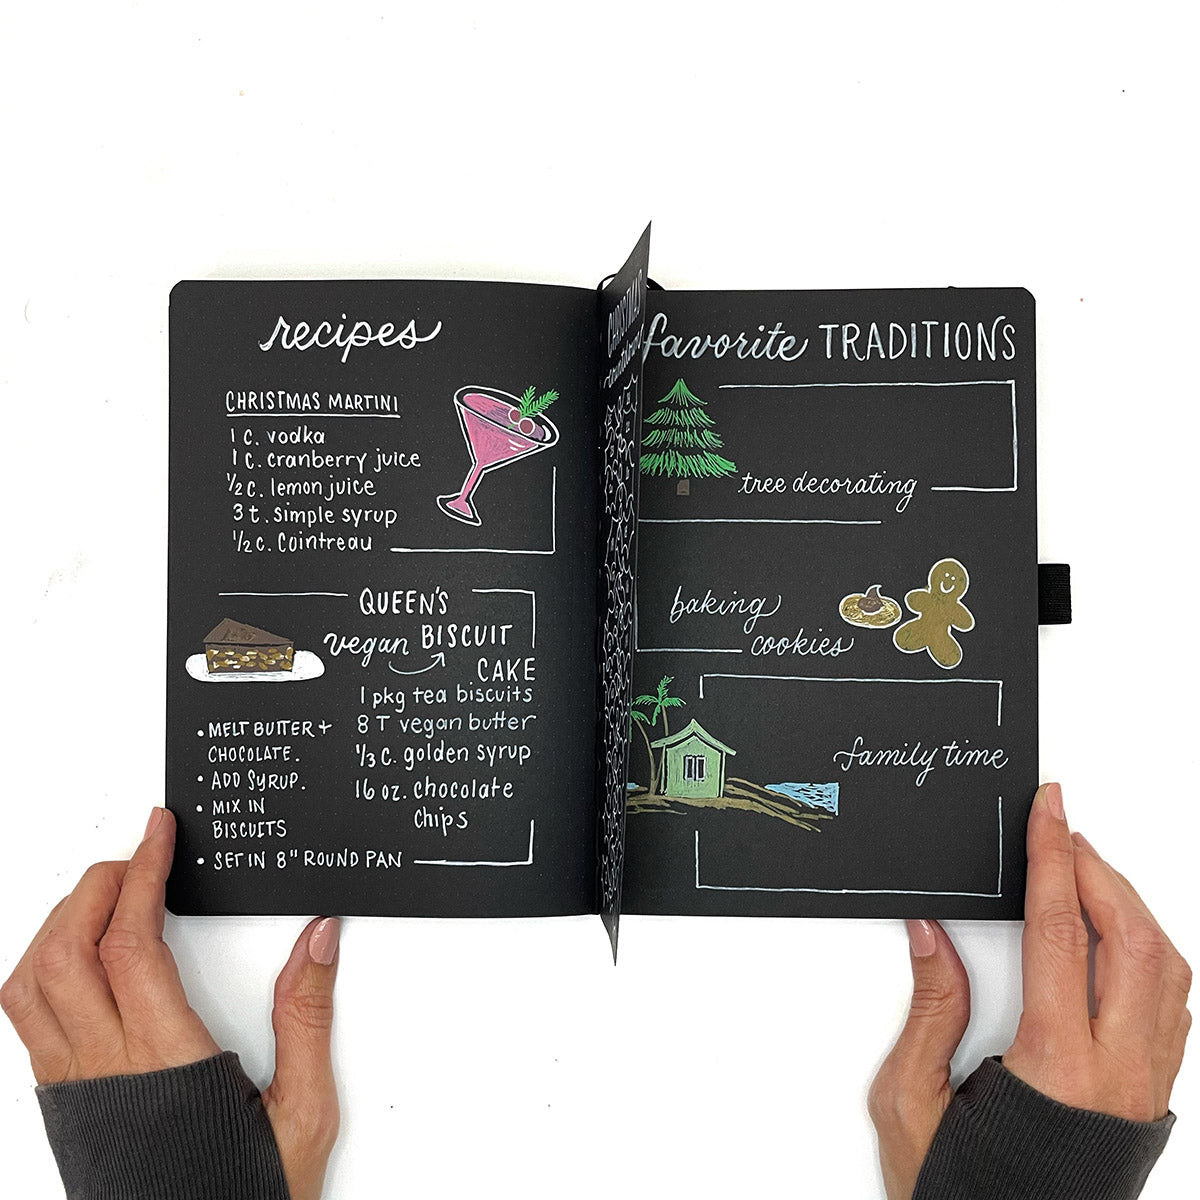 recipes
CHRISTMAS MARTINI
1 c. vodka
1 c. cranberry juice
½ c. lemon juice
3 t. simple syrup
½ c. Cointreau
QUEEN'S
vegan BISCUIT
CAKE
1 pkg tea biscuits
8 T vegan butter
⅓ c. golden syrup
16 oz. chocolate
chips
• MELT BUTTER +
CHOCOLATE.
• ADD SYRUP.
• MIX IN
BISCUITS
• SET IN 8" ROUND PAN
CHRISTMAS
favorite TRADITIONS
tree decorating
baking
cookies
family time